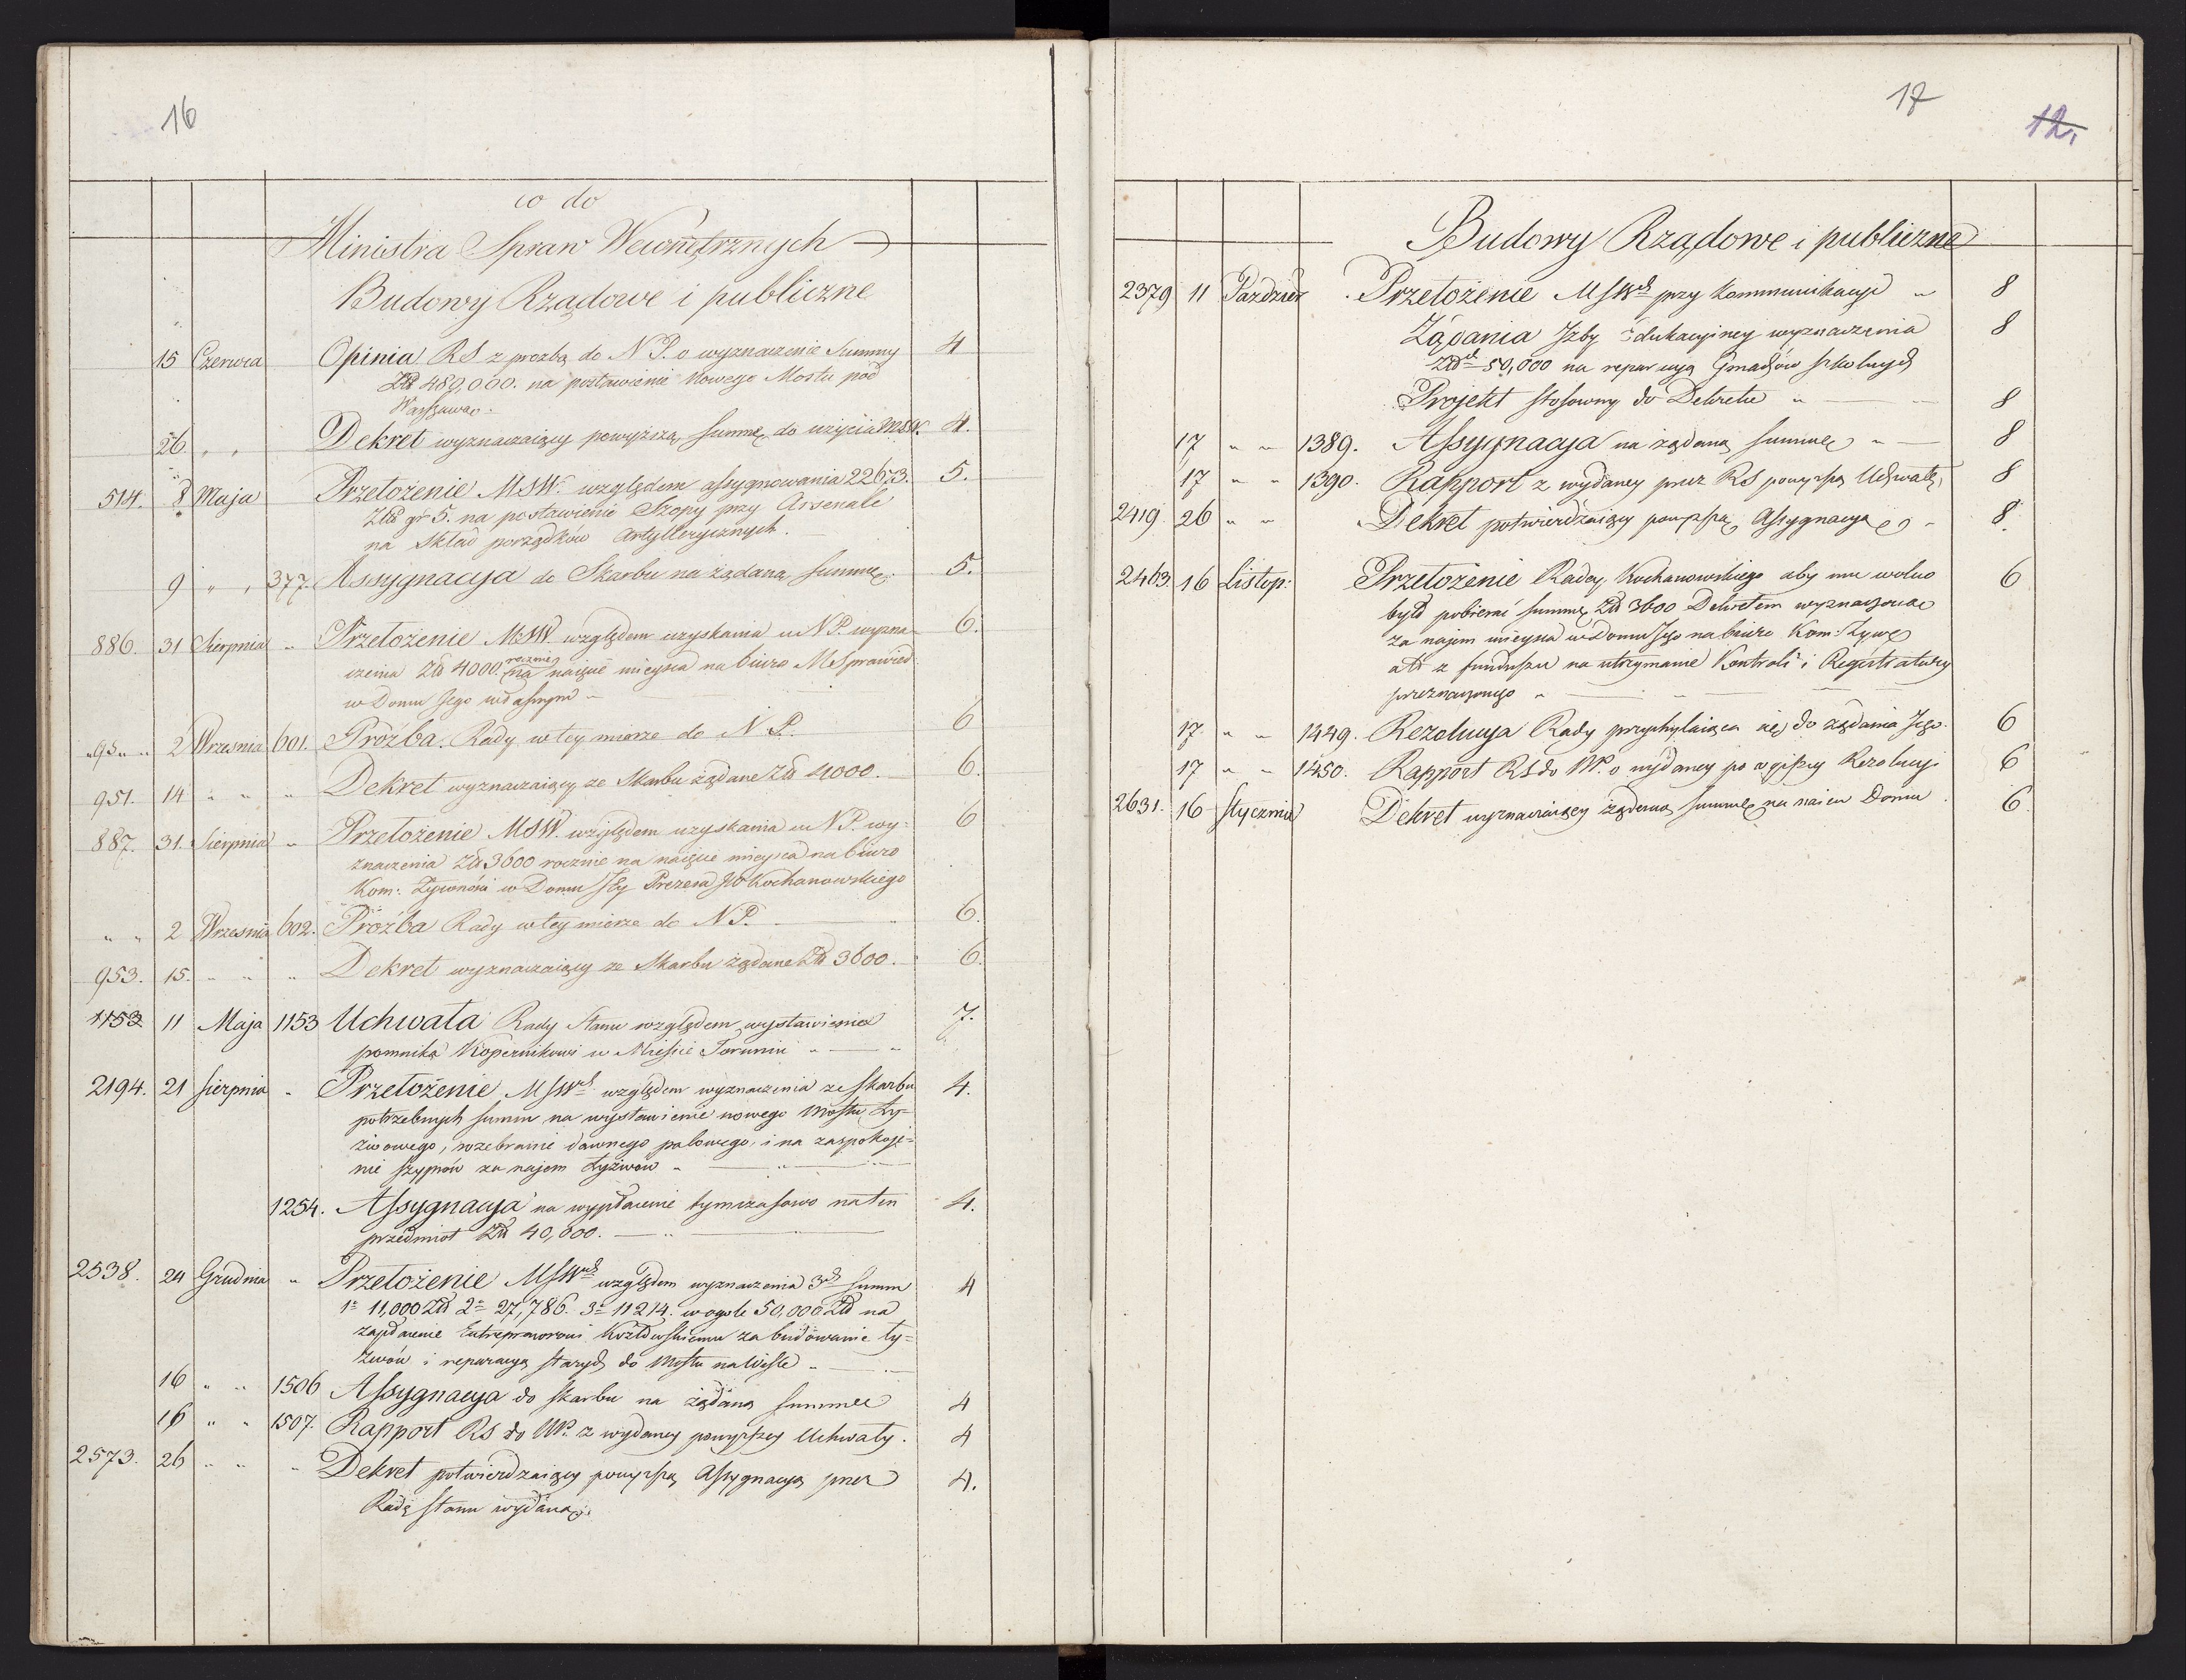 16
co do
Ministra Spraw Wewnętrznych
Budowy Rządowe i publiczne
15 Czerwca Opinia RS z prozbą do N.P. o wyznaczenie Summy 4
Złł 480,000. na postawienie Nowego Mostu pod
Warszawą.
26. " " Dekret wyznaczaiący powyższą summę do użycia MSW. 4.
514. 8 Maja Przełożenie MSW. względem assygnowania 22673. 5.
Złł gr 5. na postawienie Szopy przy Arsenale
na Skład porządków Artyllerycznych.
9 " " 377. Assygnacya do Skarbu na żądaną summę. 5.
886. 31 Sierpnia " Przełożenie MSW. względem uzyskania u N.P. wyzna- 6.
czenia Złł 4000. rocznie na naięcie mieysca na biuro MSprawied.
w Domu Jego własnym "
2 Wrzesnia 601. Próźba Rady w tey mierze do N.P. 6
951. 14 " " " Dekret wyznaczaiący ze Skarbu żądane Złł 4000. 6.
887. 31. Sierpnia " Przełożenie MSW. względem uzyskania u N.P. wy- 6
znaczenia Złł 3600 rocznie na naięcie mieysca na biuro
Kom: Żywności w Domu Jey Prezesa JW Kochanowskiego
" " 2 Wrzesnia 602. Próźba Rady w tey mierze do N.P. 6.
953. 15. " " " Dekret wyznaczaiący ze Skarbu żądane Złł 3600. 6.
1153 11 Maja 1153 Uchwała Rady Stanu względem wystawienia 7.
pomnika Kopernikowi w Mieście Toruniu " "
2194. 21 Sierpnia " Przełożenie MSWch względem wyznaczenia ze Skarbu 4.
potrzebnych summ na wystawienie nowego mostu Ły-
żwowego, rozebranie dawnego palowego, i na zaspokoje-
nie szyprów za najem Łyżwów "
1254. Assygnacya na wypłacenie tymczasowo na ten 4.
przedmiot Złł 40,000.
2538. 24 Grudnia " Przełożenie MSWch względem wyznaczenia 3ch summ 4
1o 11,000 Złł 2o 27,786. 3o 11214. w ogole 50,000 Złł na
zapłacenie Entreprenerowi Kozłowskiemu za budowanie Ły-
żwów i reparacyą starych do Mostu na Wiśle "
16 " " 1506 Assygnacya do Skarbu na żądaną summę 4
16 " " 1507. Rapport RS do NP. z wydaney powyższey Uchwały. 4
2573. 26 " " " Dekret potwierdzaiący powyższą Assygnacyą przez 4.
Radę Stanu wydaną.
17
12.
Budowy Rządowe i publiczne
2379 11 Paździer Przełożenie MSWch przy kommunikacyi " 8
Żądania Izby Edukacyiney wyznaczenia 8
Złłch 50,000 na reparacyą Gmachów szkolnych
Projekt stosowny do Dekretu " 8
17 " " 1389. Assygnacya na żądaną summę " 8
17 " " 1390. Rapport z wydaney przez RS powyższey Uchwały 8
2419 26 " " Dekret potwierdzaiący powyższą Assygnacyą 8.
2463 16 Listop: Przełożenie Radcy Kochanowskiego aby mu wolno 6
było pobierać summę Złł 3600 Dekretem wyznaczoną
za najem mieysca w Domu Jego na biuro Kom: Żywno
z funduszu na utrzymanie Kontroli i Registratury
przeznaczonego "
17 " " 1449. Rezolucya Rady przychylaiąca się do żądania Jego. 6
17 " " 1450. Rapport RS do NP. o wydaney powyższey Rezolucyi 6
2631. 16 Stycznia Dekret wyznaczaiący żądaną summę na naiem Domu 6.